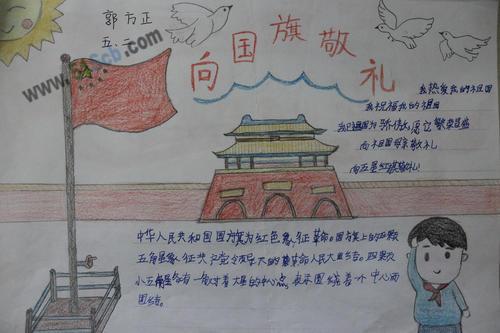 郭方正
五.二
向国旗敬礼
我热爱我的祖国
我祝福我的祖国
我以祖国为骄傲,愿它繁荣昌盛
向祖国母亲敬礼
向五星红旗敬礼!
中华人民共和国国旗为红色象征革命。国旗上的五颗
五角星象征共产党领导下的革命人民大团结。四颗
小五角星各有一角对着大星的中心点,表示围绕着一个中心而
团结。